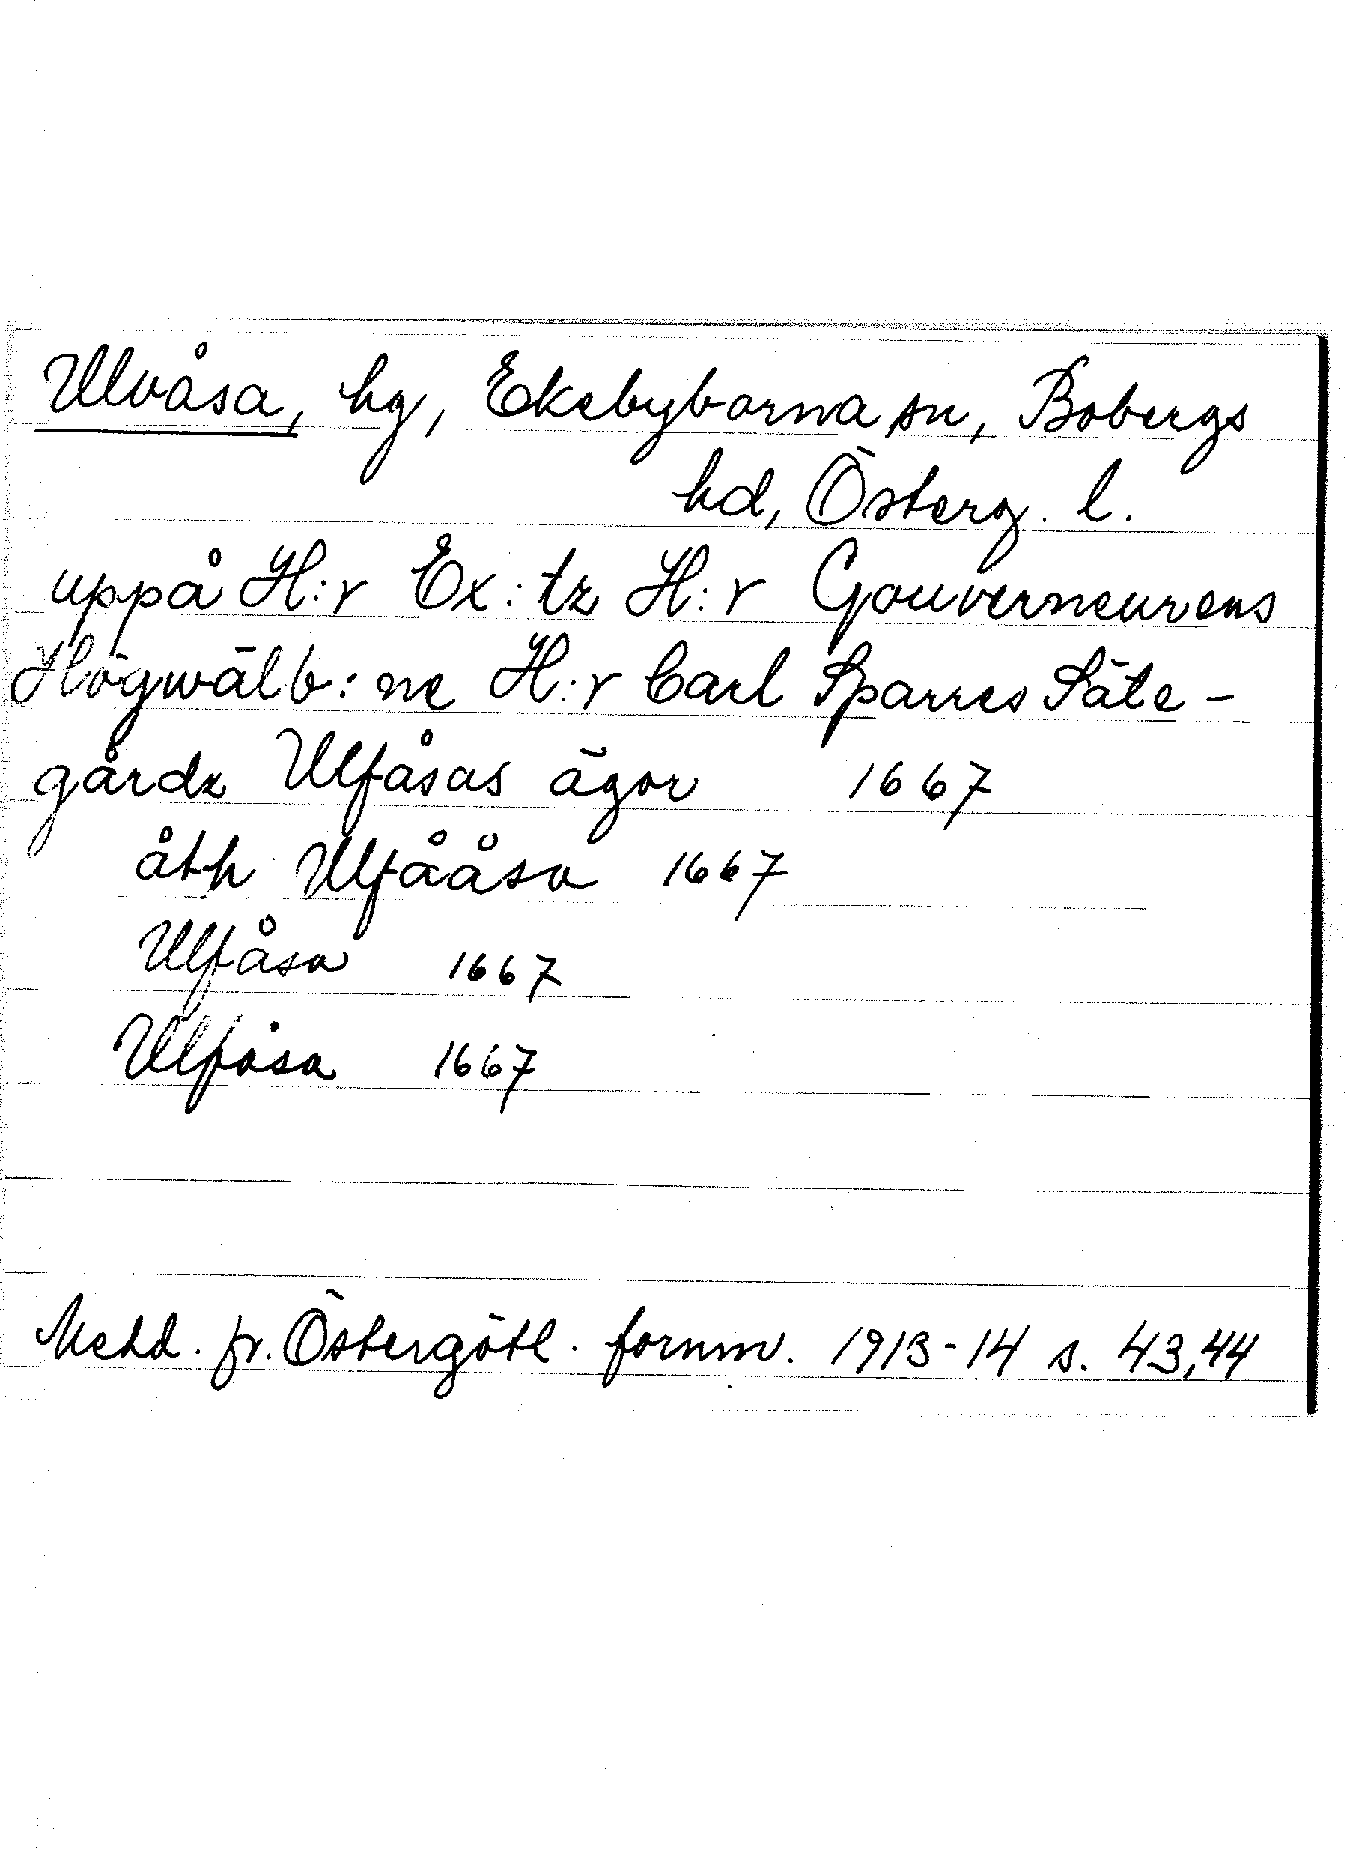 Ulvåsa, hg, Ekebyborna sn, Bobergs
hd, Österg. l.
uppå H:r Ex:tz H:r Gouverneurens
Högwälb:ne H:r Carl Sparres Säte-
gårdz Ulfåsas ägor 1667
åth Ulfååsa 1667
Ulfåsa 1667
Ulfåsa 1667
Medd. fr. Östergötl. fornm. 1913-14 s. 43,44